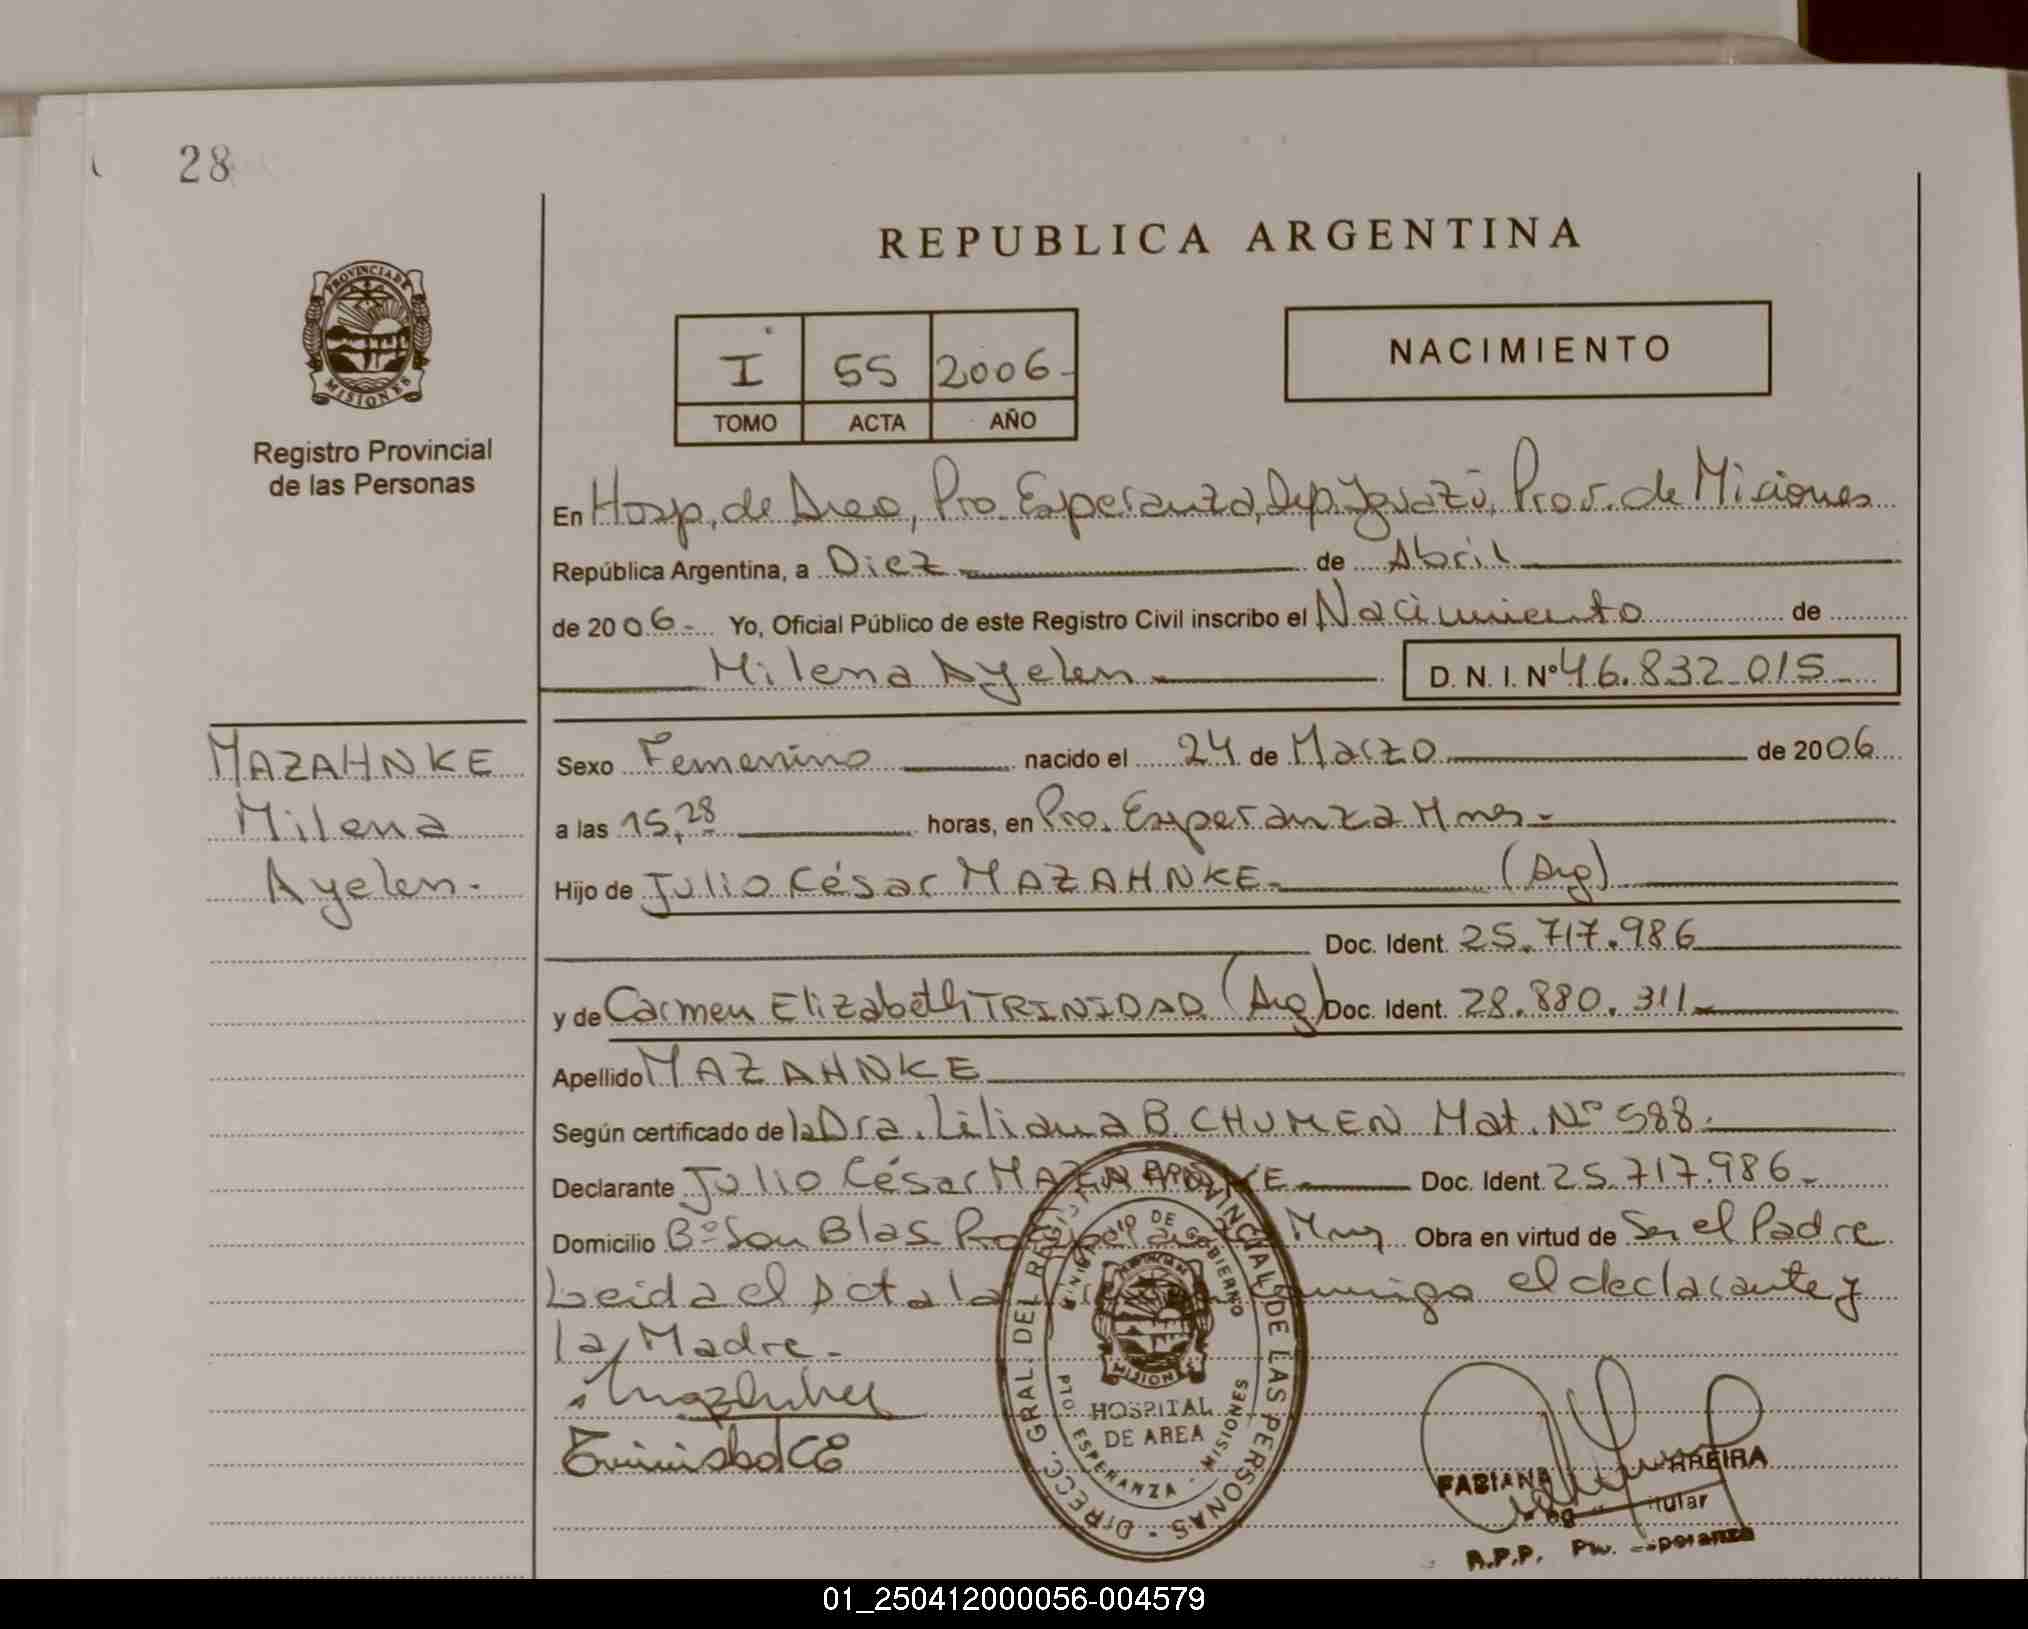 28
REPUBLICA ARGENTINA
PROVINCIA DE
MISIONES
Registro Provincial
de las Personas
I 55 2006-
TOMO ACTA AÑO
NACIMIENTO
En Hosp. de Area, Pto. Esperanza, Dep. Iguazú, Prov. de Misiones
República Argentina, a Diez de Abril
de 2006- Yo, Oficial Público de este Registro Civil inscribo el Nacimiento de
Milena Ayelen D. N. I. Nº 46.832.015
MAZAHNKE
Milena
Ayelen-
Sexo Femenino nacido el 24 de Marzo de 2006
a las 15,28 horas, en Pto. Esperanza Mnes-
Hijo de Julio César MAZAHNKE- (Arg)
Doc. Ident. 25.717.986
y de Carmen Elizabeth TRINIDAD (Arg) Doc. Ident. 28.880.311-
Apellido MAZAHNKE
Según certificado de la Dra. Liliana B. CHUMEN Mat. Nº 588.
Declarante Julio César MAZAHNKE Doc. Ident. 25.717.986-
Domicilio Bº San Blas Pto. Esperanza Mnes Obra en virtud de Ser el Padre
Leida el Acta la conmigo el declarante y
la Madre-
Trinidad CE
DIRECC. GRAL. DEL REGISTRO PROVINCIAL DE LAS PERSONAS
MINISTERIO DE GOBIERNO
MISIONES
HOSPITAL
DE AREA
PTO ESPERANZA - MISIONES
FABIANA
R.P.P. Pto. Esperanza
01_250412000056-004579